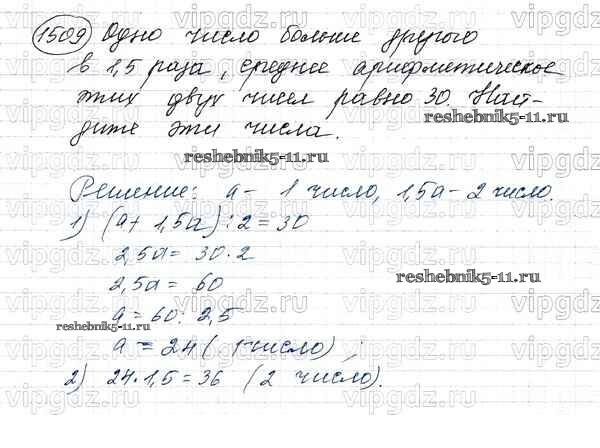 1509 Одно число больше другого
в 1,5 раза, среднее арифметическое
этих двух чисел равно 30. Най-
дите эти числа.
reshebnik5-11.ru
reshebnik5-11.ru
Решение: a - 1 число, 1,5a - 2 число.
1) (a + 1,5a) : 2 = 30
2,5a = 30 · 2
2,5a = 60
reshebnik5-11.ru
a = 60 : 2,5
reshebnik5-11.ru
a = 24 (1 число);
2) 24 · 1,5 = 36 (2 число).
vipgdz.ru